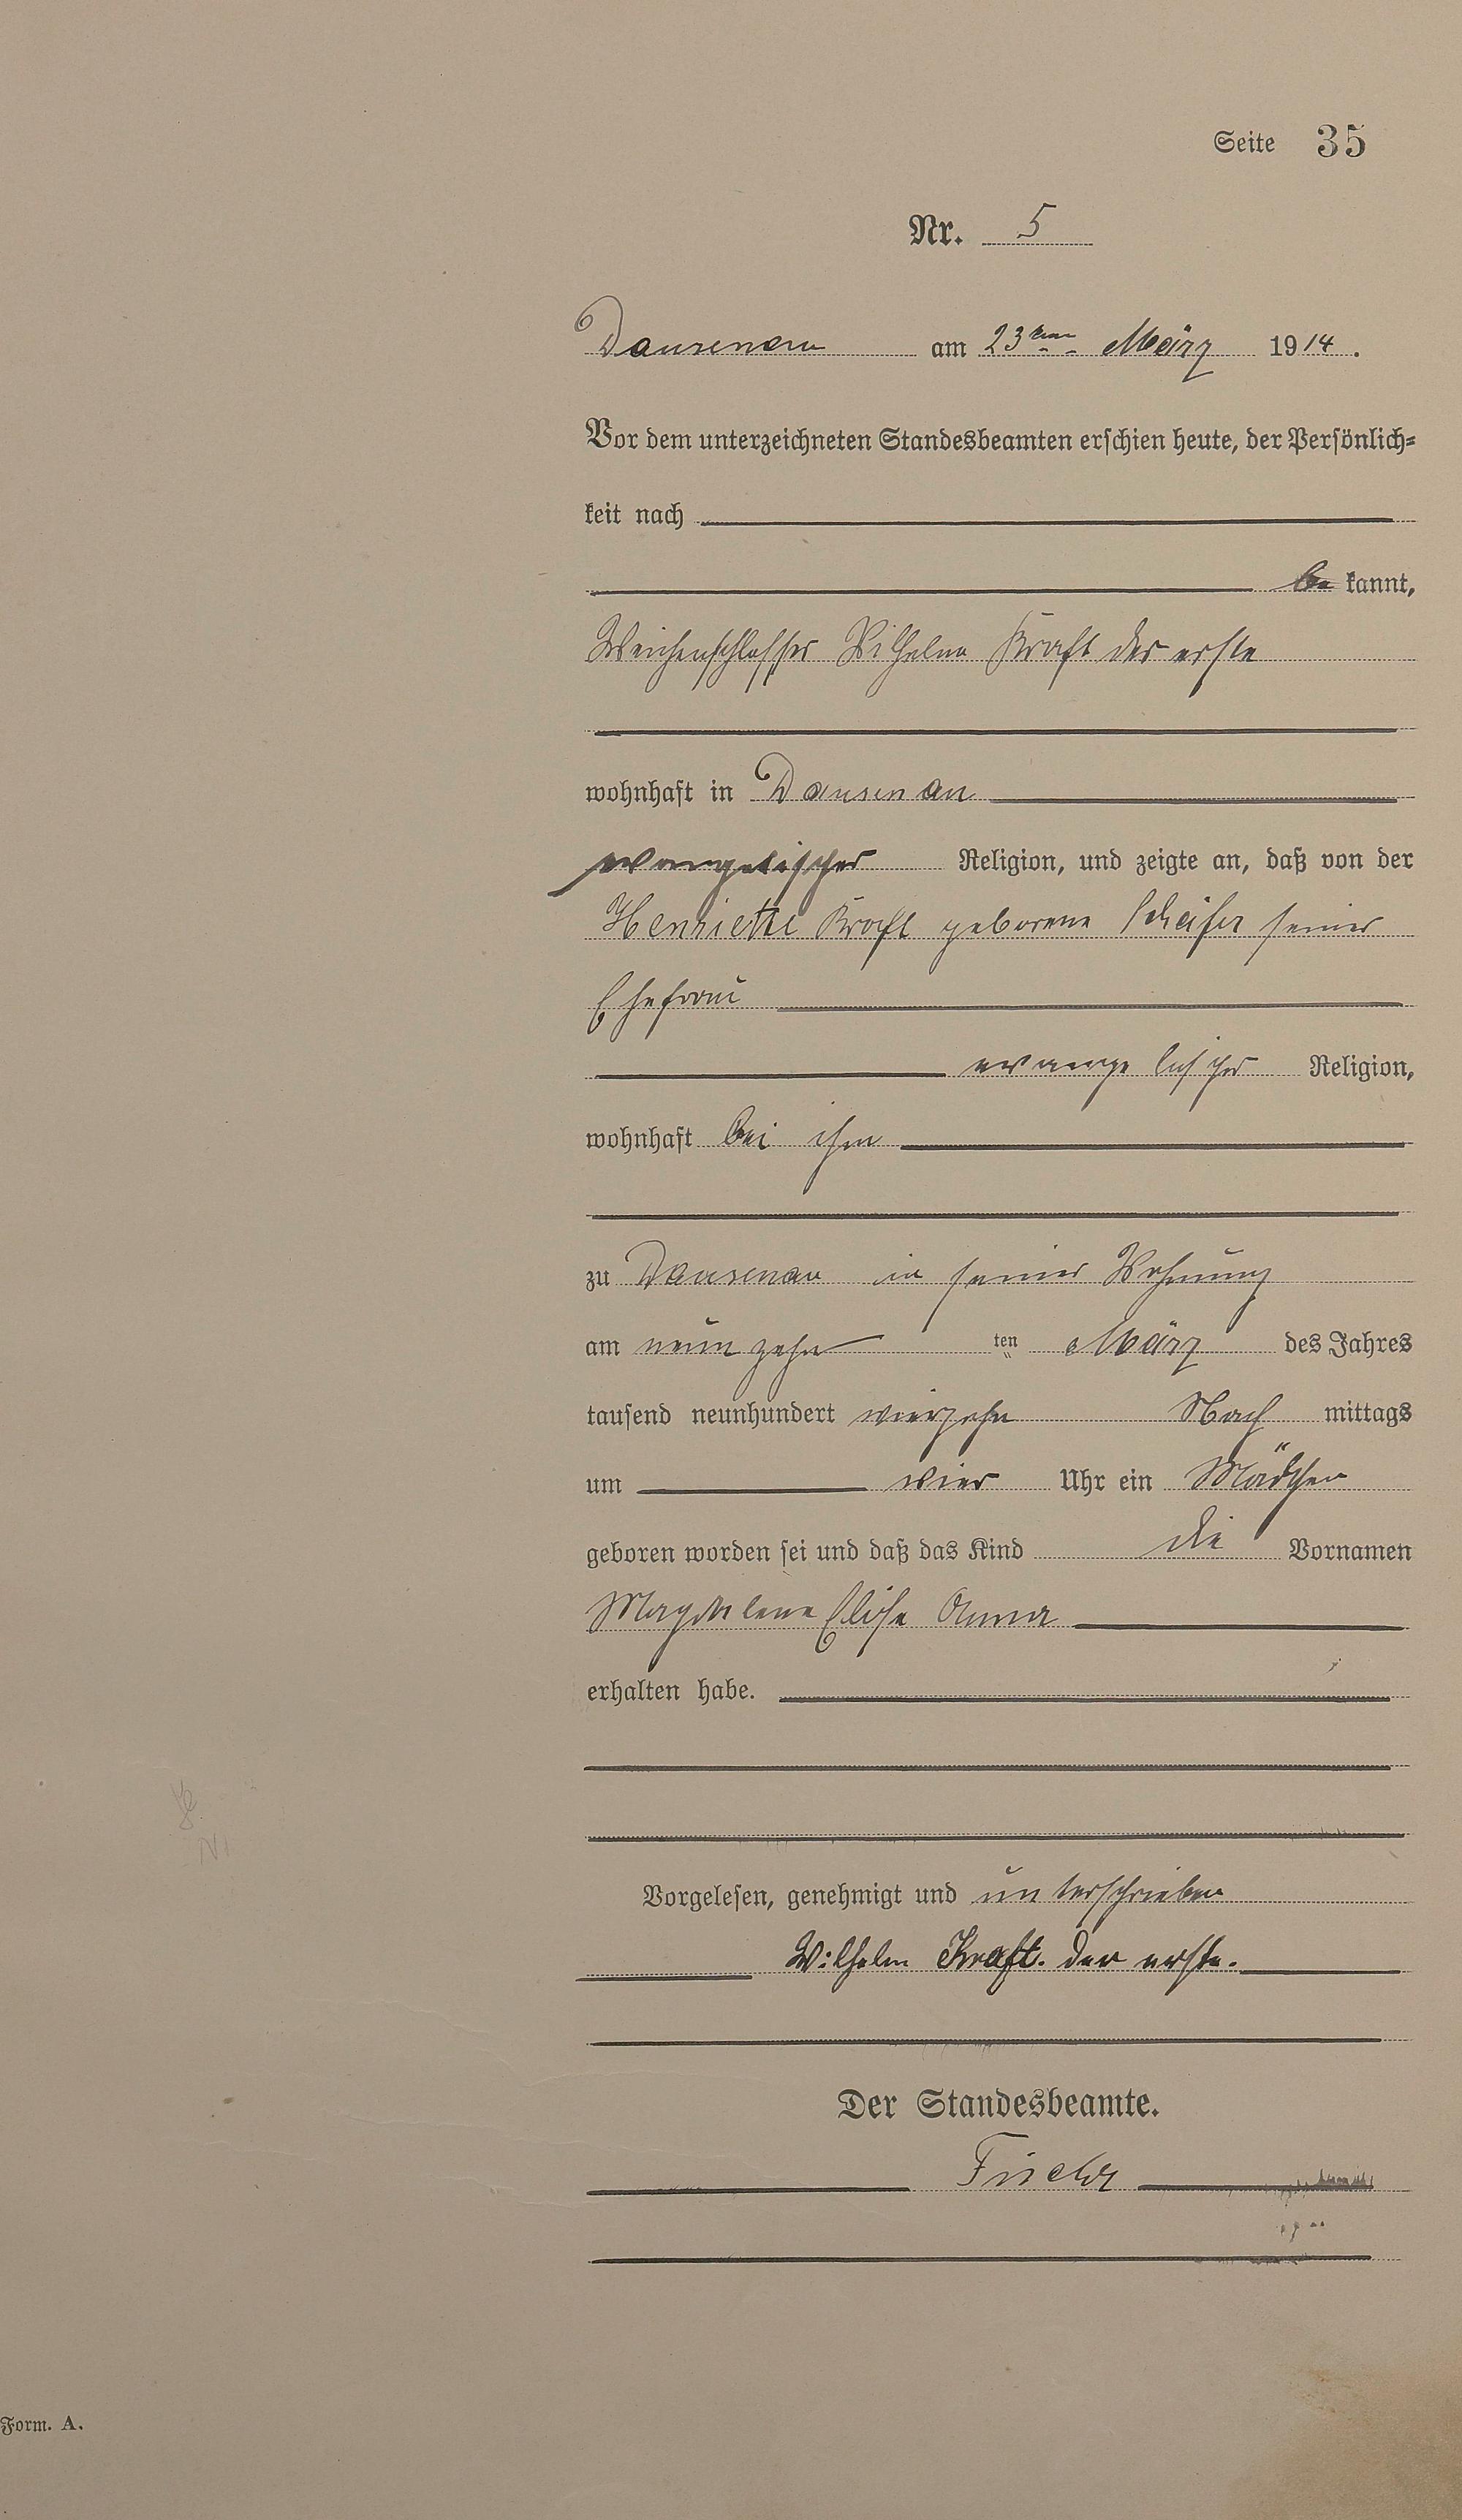 Seite 35
Nr. 5
Dausenau am 23ten März 1914.
Vor dem unterzeichneten Standesbeamten erschien heute, der Persönlich-
keit nach
be kannt,
Weichenschlosser Wilhelm Kraft der erste
wohnhaft in Dausenau
evangelischer Religion, und zeigte an, daß von der
Henriette Kraft geborene Schäfer seiner
Ehefrau
evangelischer Religion,
wohnhaft bei ihm
zu Dausenau in seiner Wohnung
am neunzehn ten März des Jahres
tausend neunhundert vierzehn Nach mittags
um vier Uhr ein Mädchen
geboren worden sei und daß das Kind die Vornamen
Magdalene Elise Anna
erhalten habe.
Vorgelesen, genehmigt und unterschrieben
Wilhelm Kraft. der erste.
Der Standesbeamte.
Form. A.